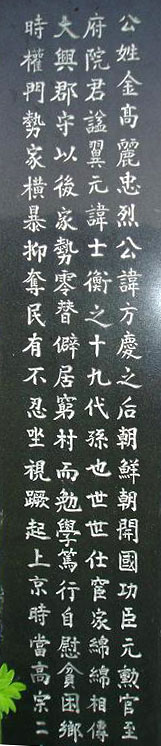 公姓金高麗忠烈公諱方慶之后朝鮮朝開國功臣元勳官至
府院君諡翼元諱士衡之十九代孫也世世仕宦家綿綿相傳
大興郡守以後家勢零替僻居窮村而勉學篤行自慰貧困鄉
時權門勢家橫暴抑奪民有不忍坐視蹶起上京時當高宗二